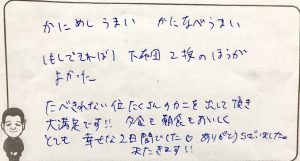 かにめし うまい　かになべうまい
(もしできれば) 下布団 2枚のほうが
よかった
たべきれない位たくさんのカニを出して頂き
大満足です!! 夕食も朝食もおいしく
とても 幸せな2日間でした♡ ありがとうございました。
またきます!!